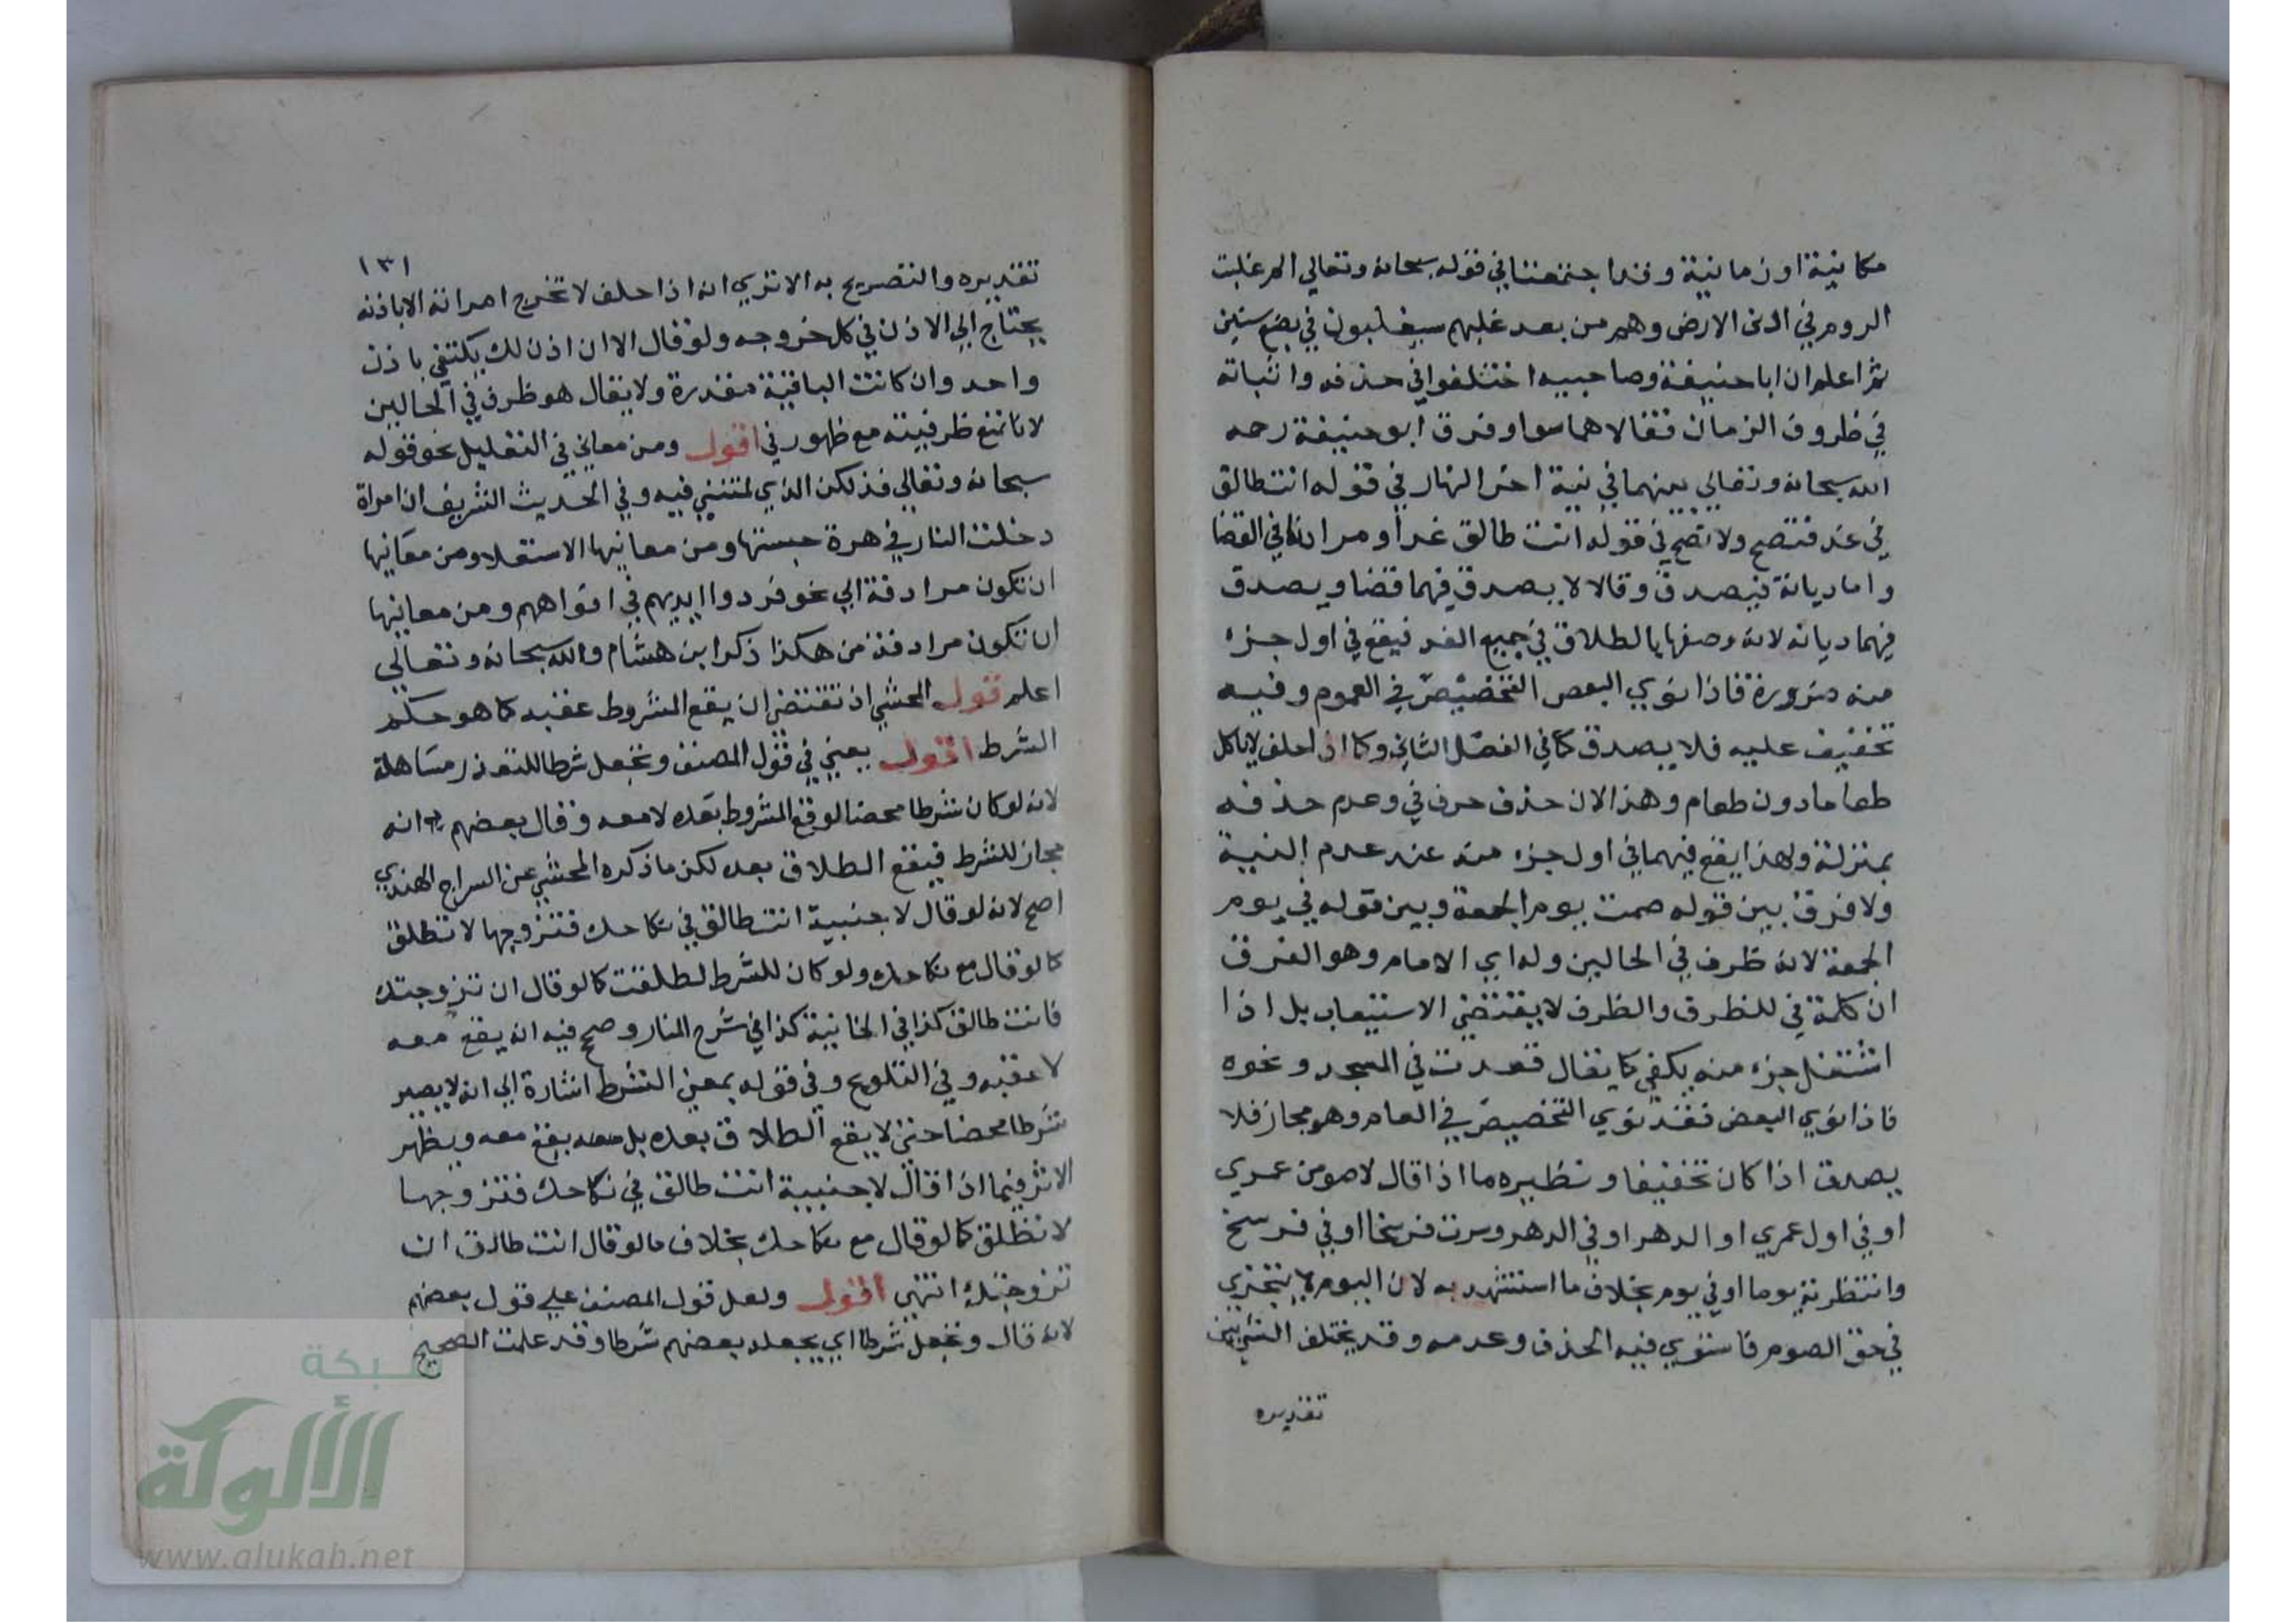 مكانية او زمانية وقد اجتمعتا في قوله سبحانه وتعالي الم غلبت
الروم في ادنى الارض وهم من بعد غلبهم سيغلبون في بضع سنين
ثم اعلم ان ابا حنيفة وصاحبيه اختلفوا في حذفه واثباته
في ظروف الزمان فقالا هما سوا وفرق ابو حنيفة رحمه
الله سبحانه وتعالي بينهما في نية اخر النهار في قوله انت طالق
في غد فتصح ولا تصح في قوله انت طالق غدا ومراده في القضا
واما ديانة فيصدق وقالا لا يصدق فيهما قضا ويصدق
فيهما ديانه لانه وصفها بالطلاق في جميع الغد فيقع في اول جزء
منه ضرورة فاذا نوي البعض التخصيص في العموم وفيه
تخفيف عليه فلا يصدق كما في الفصل الثاني وكما اذا حلف لا ياكل
طعاما دون طعام وهذا لان حذف حرف في وعدم حذفه
بمنزلة ولهذا يقع فيهما في اول جزء منه عند عدم النية
ولا فرق بين قوله صمت يوم الجمعة وبين قوله في يوم
الجمعة لانه ظرف في الحالين وله اي الامام وهو الفرق
ان كلمة في للظرف والظرف لا يقتضي الاستيعاب بل اذا
اشتغل جزء منه يكفي كما يقال قعدت في المسجد ونحوه
فاذا نوي البعض فقد نوي التخصيص في العام وهو مجاز فلا
يصدق اذا كان تخفيفا ونظيره ما اذا قال لاصومن عمري
او في اول عمري او الدهر او في الدهر وسرت فرسخا او في فرسخ
وانتظرته يوما او في يوم بخلاف ما استشهد به لان اليوم لا يتجزي
في حق الصوم فاستوي فيه الحذف وعدمه وقد يختلف الشيء بين
تقديره
١٣١
تقديره والتصريح به الا تري انه اذا حلف لا تخرج امراته الا باذنه
يحتاج الي الاذن في كل خروجه ولو قال الا ان اذن لك يكتفي باذن
واحد وان كانت الباقية مقدرة ولا يقال هو ظرف في الحالين
لانا نمنع ظرفيته مع ظهور في اقول ومن معاني في التعليل نحو قوله
سبحانه وتعالي فذلكن الذي لمتنني فيه وفي الحديث الشريف ان امراة
دخلت النار في هرة حبستها ومن معانيها الاستعلا ومن معانيها
ان تكون مرادفة الي نحو فردوا ايديهم في افواههم ومن معانيها
ان تكون مرادفة من هكذا ذكر ابن هشام والله سبحانه وتعالي
اعلم قول المحشي اذ تقتضي ان يقع المشروط عقبه كما هو حكم
الشرط اقول يعني في قول المصنف وتجعل شرطا للتعذر مساهلة
لانه لو كان شرطا محضا لوقع المشروط بعده لا معه وقال بعضهم انه
مجاز للشرط فيقع الطلاق بعده لكن ما ذكره المحشي عن السراج الهندي
اصح لانه لو قال لاجنبية انت طالق في نكاحك فتزوجها لا تطلق
كما لو قال مع نكاحك ولو كان للشرط لطلقت كما لو قال ان تزوجتك
فانت طالق كذا في الخانية كذا في شرح المنار وصح فيه انه يقع معه
لا عقبه وفي التلويح وفي قوله بمعني الشرط اشارة الي انه لا يصير
شرطا محضا حتي لا يقع الطلاق بعده بل معه يقع معه ويظهر
الاثر فيما اذا قال لاجنبية انت طالق في نكاحك فتزوجها
لا تطلق كما لو قال مع نكاحك بخلاف ما لو قال انت طالق ان
تزوجتك انتهي اقول ولعل قول المصنف علي قول بعضهم
لانه قال وتجعل شرطا اي يجعله بعضهم شرطا وقد علمت الصحيح
شبكة
الألوكة
www.alukah.net